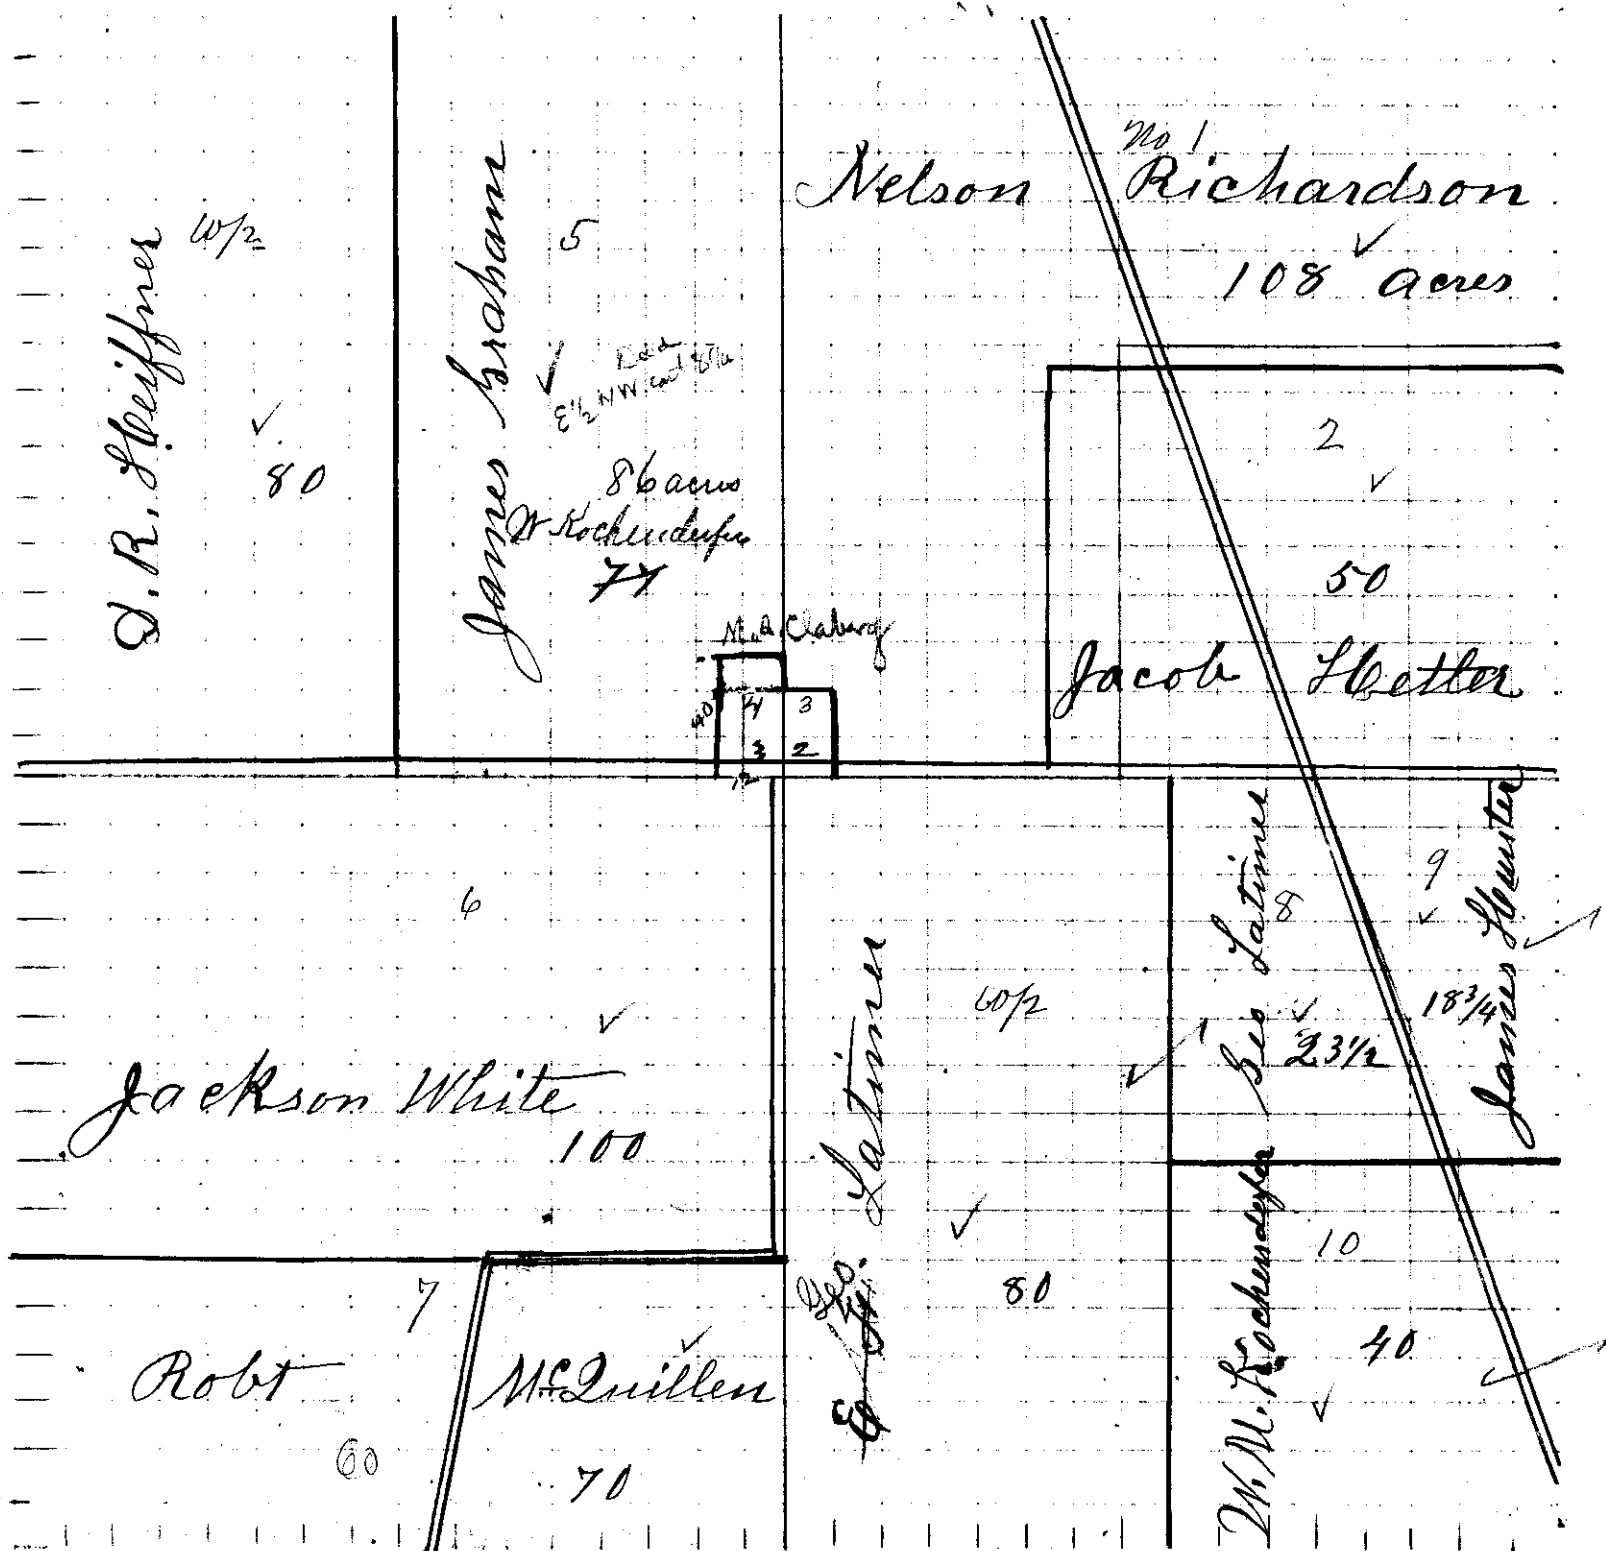 D. R. Heiffner
W/2
80
James Graham
5
E 1/2 NW
86 acres
W Kochenderfer
77
Nelson Richardson
No 1
108 acres
2
50
Jacob Hetler
M. A. Clabaug
40
4 3
3 2
12
6
Jackson White
100
7
Robt McQuillen
60
70
Geo.
E H. Latimer
W/2
80
Geo Latimer
8
23 1/2
9
James Hunter
18 3/4
W. M. Kochenderfer
10
40